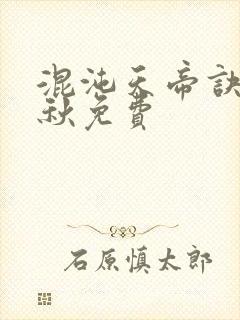 混沌天帝訣
秋免費
石原慎太郎